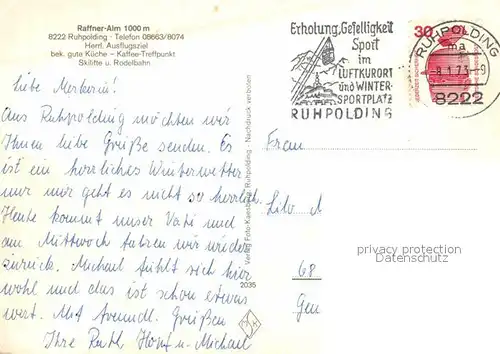 Raffner-Alm 1000 m
8222 Ruhpolding · Telefon 08663/8074
Herrl. Ausflugsziel
bek. gute Küche – Kaffee-Treffpunkt
Skihütte u. Rodelbahn
Liebe Merkerin!
Aus Ruhpolding möchten wir
Ihnen liebe Grüße senden. Es
ist ein herrliches Winterwetter
nur mir geht es nicht so herrlich.
Heute kommt unser Vati und
am Mittwoch fahren wir wieder
zurück. Michael fühlt sich hier
wohl und das ist schon etwas
wert. Mit freundl. Grüßen
Ihre Ruth u. Michael
Verlag Foto Ruhpolding - Nachdruck verboten
2035
Erholung, Geselligkeit
Sport
im
LUFTKURORT
und WINTER-
SPORTPLATZ
RUHPOLDING
30
RUHPOLDING
ma
- 8.1.73 - 9
8222
Frau
Lilo
68
Gen
Privatsphäre geschützt
Privacy protected